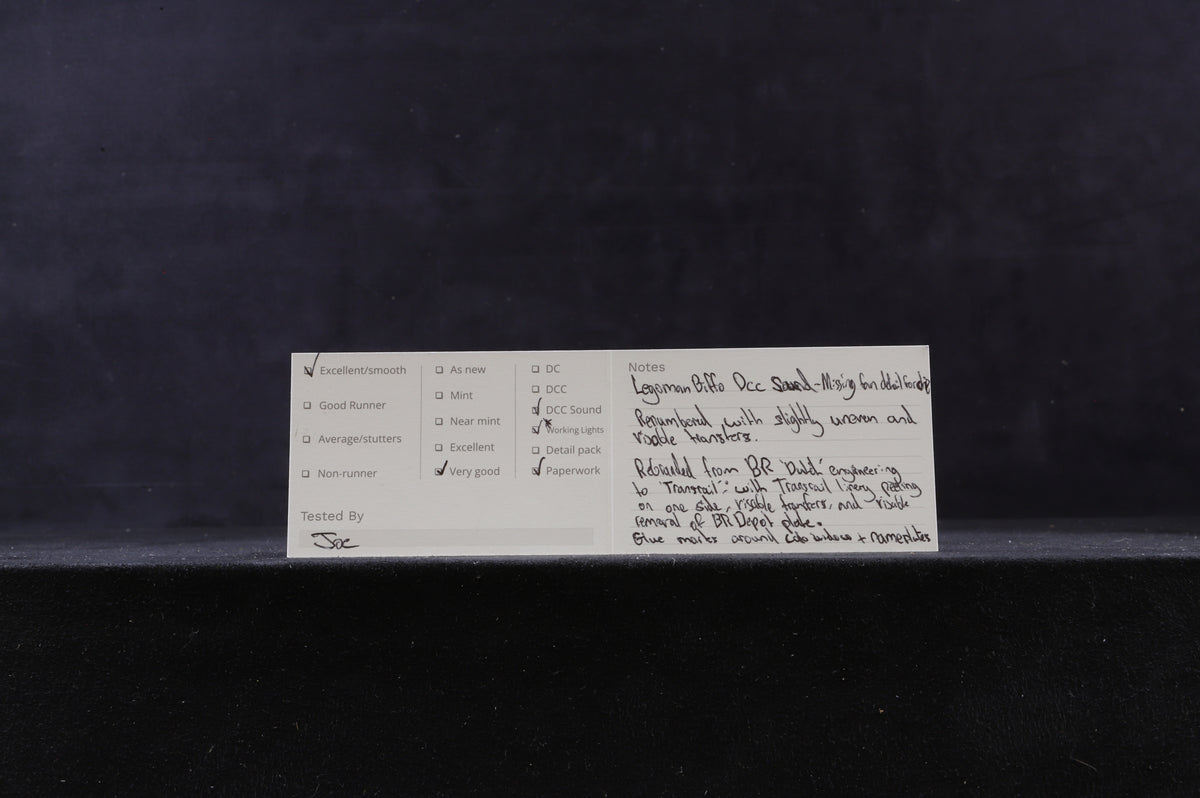 Excellent/smooth
Good Runner
Average/stutters
Non-runner
As new
Mint
Near mint
Excellent
Very good
DC
DCC
DCC Sound
Working Lights
Detail pack
Paperwork
Tested By
Joe
Notes
Legoman Biffo Dcc Sound - Missing fan detail
Renumbered with slightly uneven and
visable transfers.
Rebranded from BR 'Dutch' engineering
to 'Transrail' with Transrail livery peeling
on one side, visable transfers, and visable
removal of BR Depot plate.
Glue marks around cab windows + nameplates